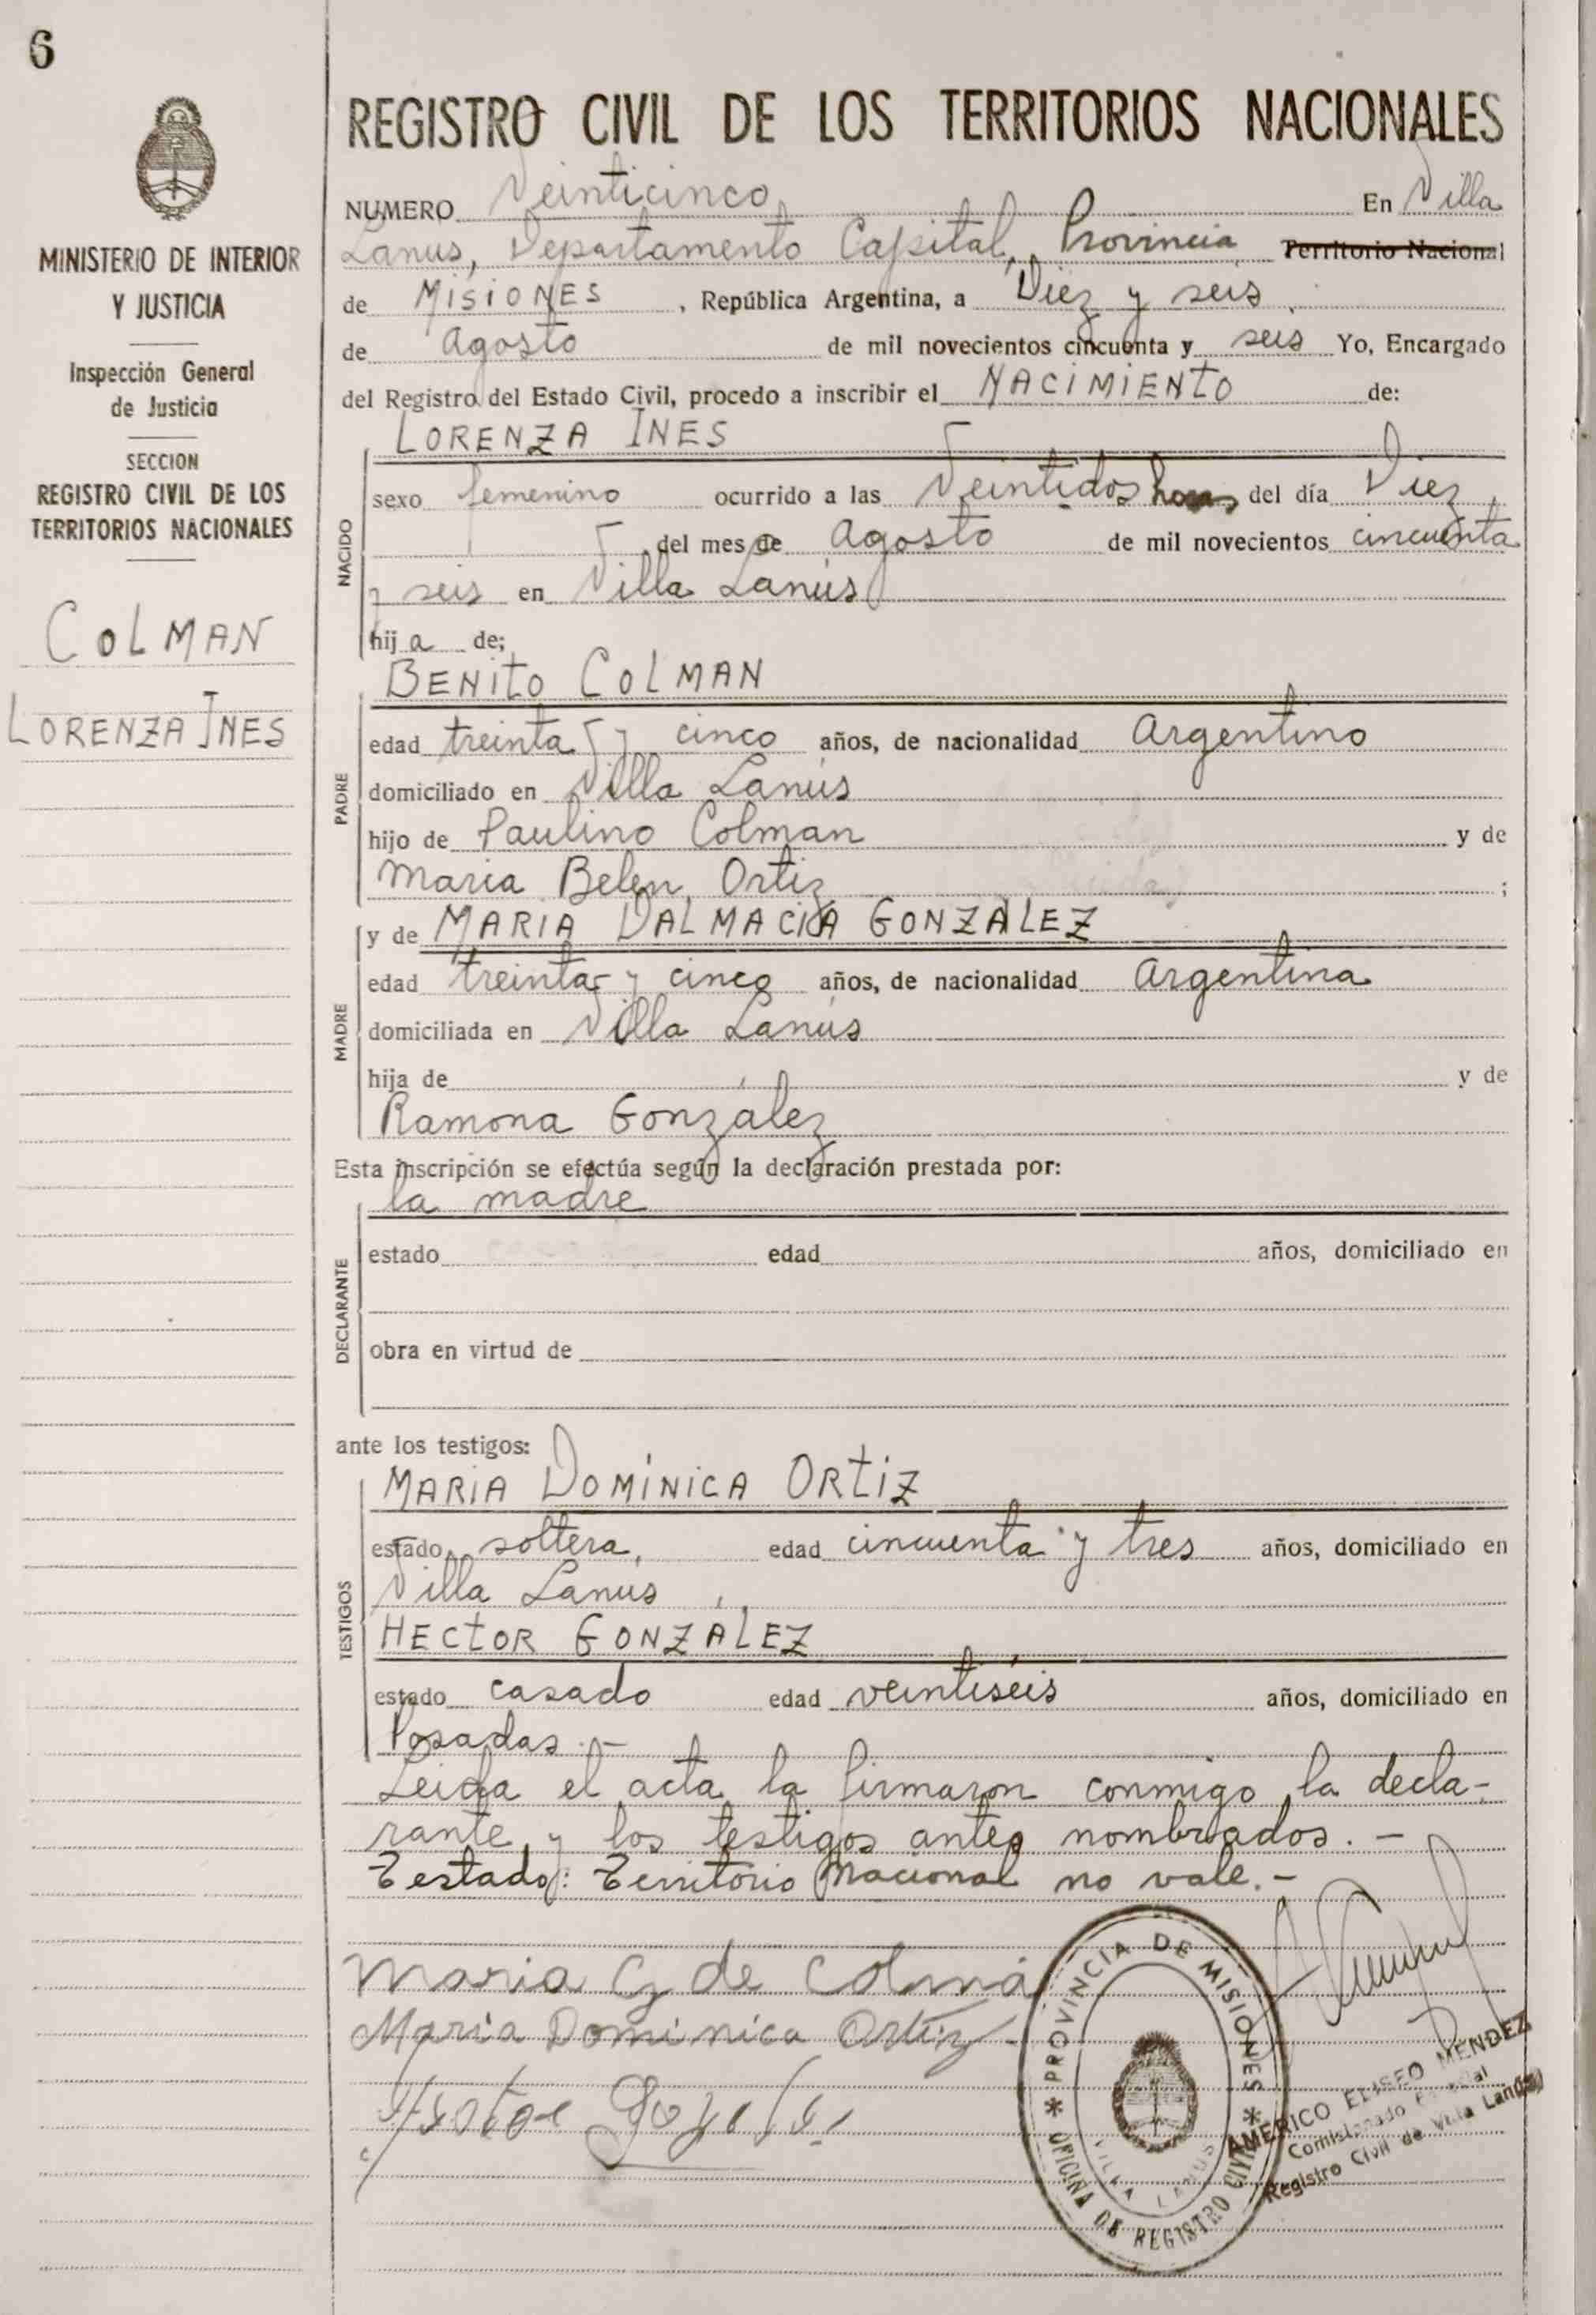 6
MINISTERIO DE INTERIOR
Y JUSTICIA
Inspección General
de Justicia
SECCION
REGISTRO CIVIL DE LOS
TERRITORIOS NACIONALES
COLMAN
LORENZA INES
REGISTRO CIVIL DE LOS TERRITORIOS NACIONALES
NUMERO Veinticinco En Villa
Lanús, Departamento Capital, Provincia Territorio Nacional
de MISIONES, República Argentina, a Diez y seis
de Agosto de mil novecientos cincuenta y seis Yo, Encargado
del Registro del Estado Civil, procedo a inscribir el NACIMIENTO de:
LORENZA INES
NACIDO
sexo femenino ocurrido a las Veintidos horas del día Diez
del mes de Agosto de mil novecientos cincuenta
y seis en Villa Lanús
hija de;
BENITO COLMAN
PADRE
edad treinta y cinco años, de nacionalidad Argentino
domiciliado en Villa Lanús
hijo de Paulino Colman y de
Maria Belen Ortiz ;
y de MARIA DALMACIA GONZALEZ
MADRE
edad treinta y cinco años, de nacionalidad Argentina
domiciliada en Villa Lanús
hija de y de
Ramona González
Esta inscripción se efectúa según la declaración prestada por:
la madre
DECLARANTE
estado edad años, domiciliado en
obra en virtud de
ante los testigos:
MARIA DOMINICA ORTIZ
TESTIGOS
estado soltera, edad cincuenta y tres años, domiciliado en
Villa Lanús
HECTOR GONZÁLEZ
estado casado edad veintiséis años, domiciliado en
Posadas.-
Leida el acta la firmaron conmigo la decla-
rante y los testigos antes nombrados.-
Testado: Territorio Nacional no vale.-
Maria G de Colmá
Maria Dominica Ortiz
PROVINCIA DE MISIONES
OFICINA DE REGISTRO CIVIL
VILLA LANUS
AMERICO ELISEO MENDEZ
Registro Civil de Villa Lanús